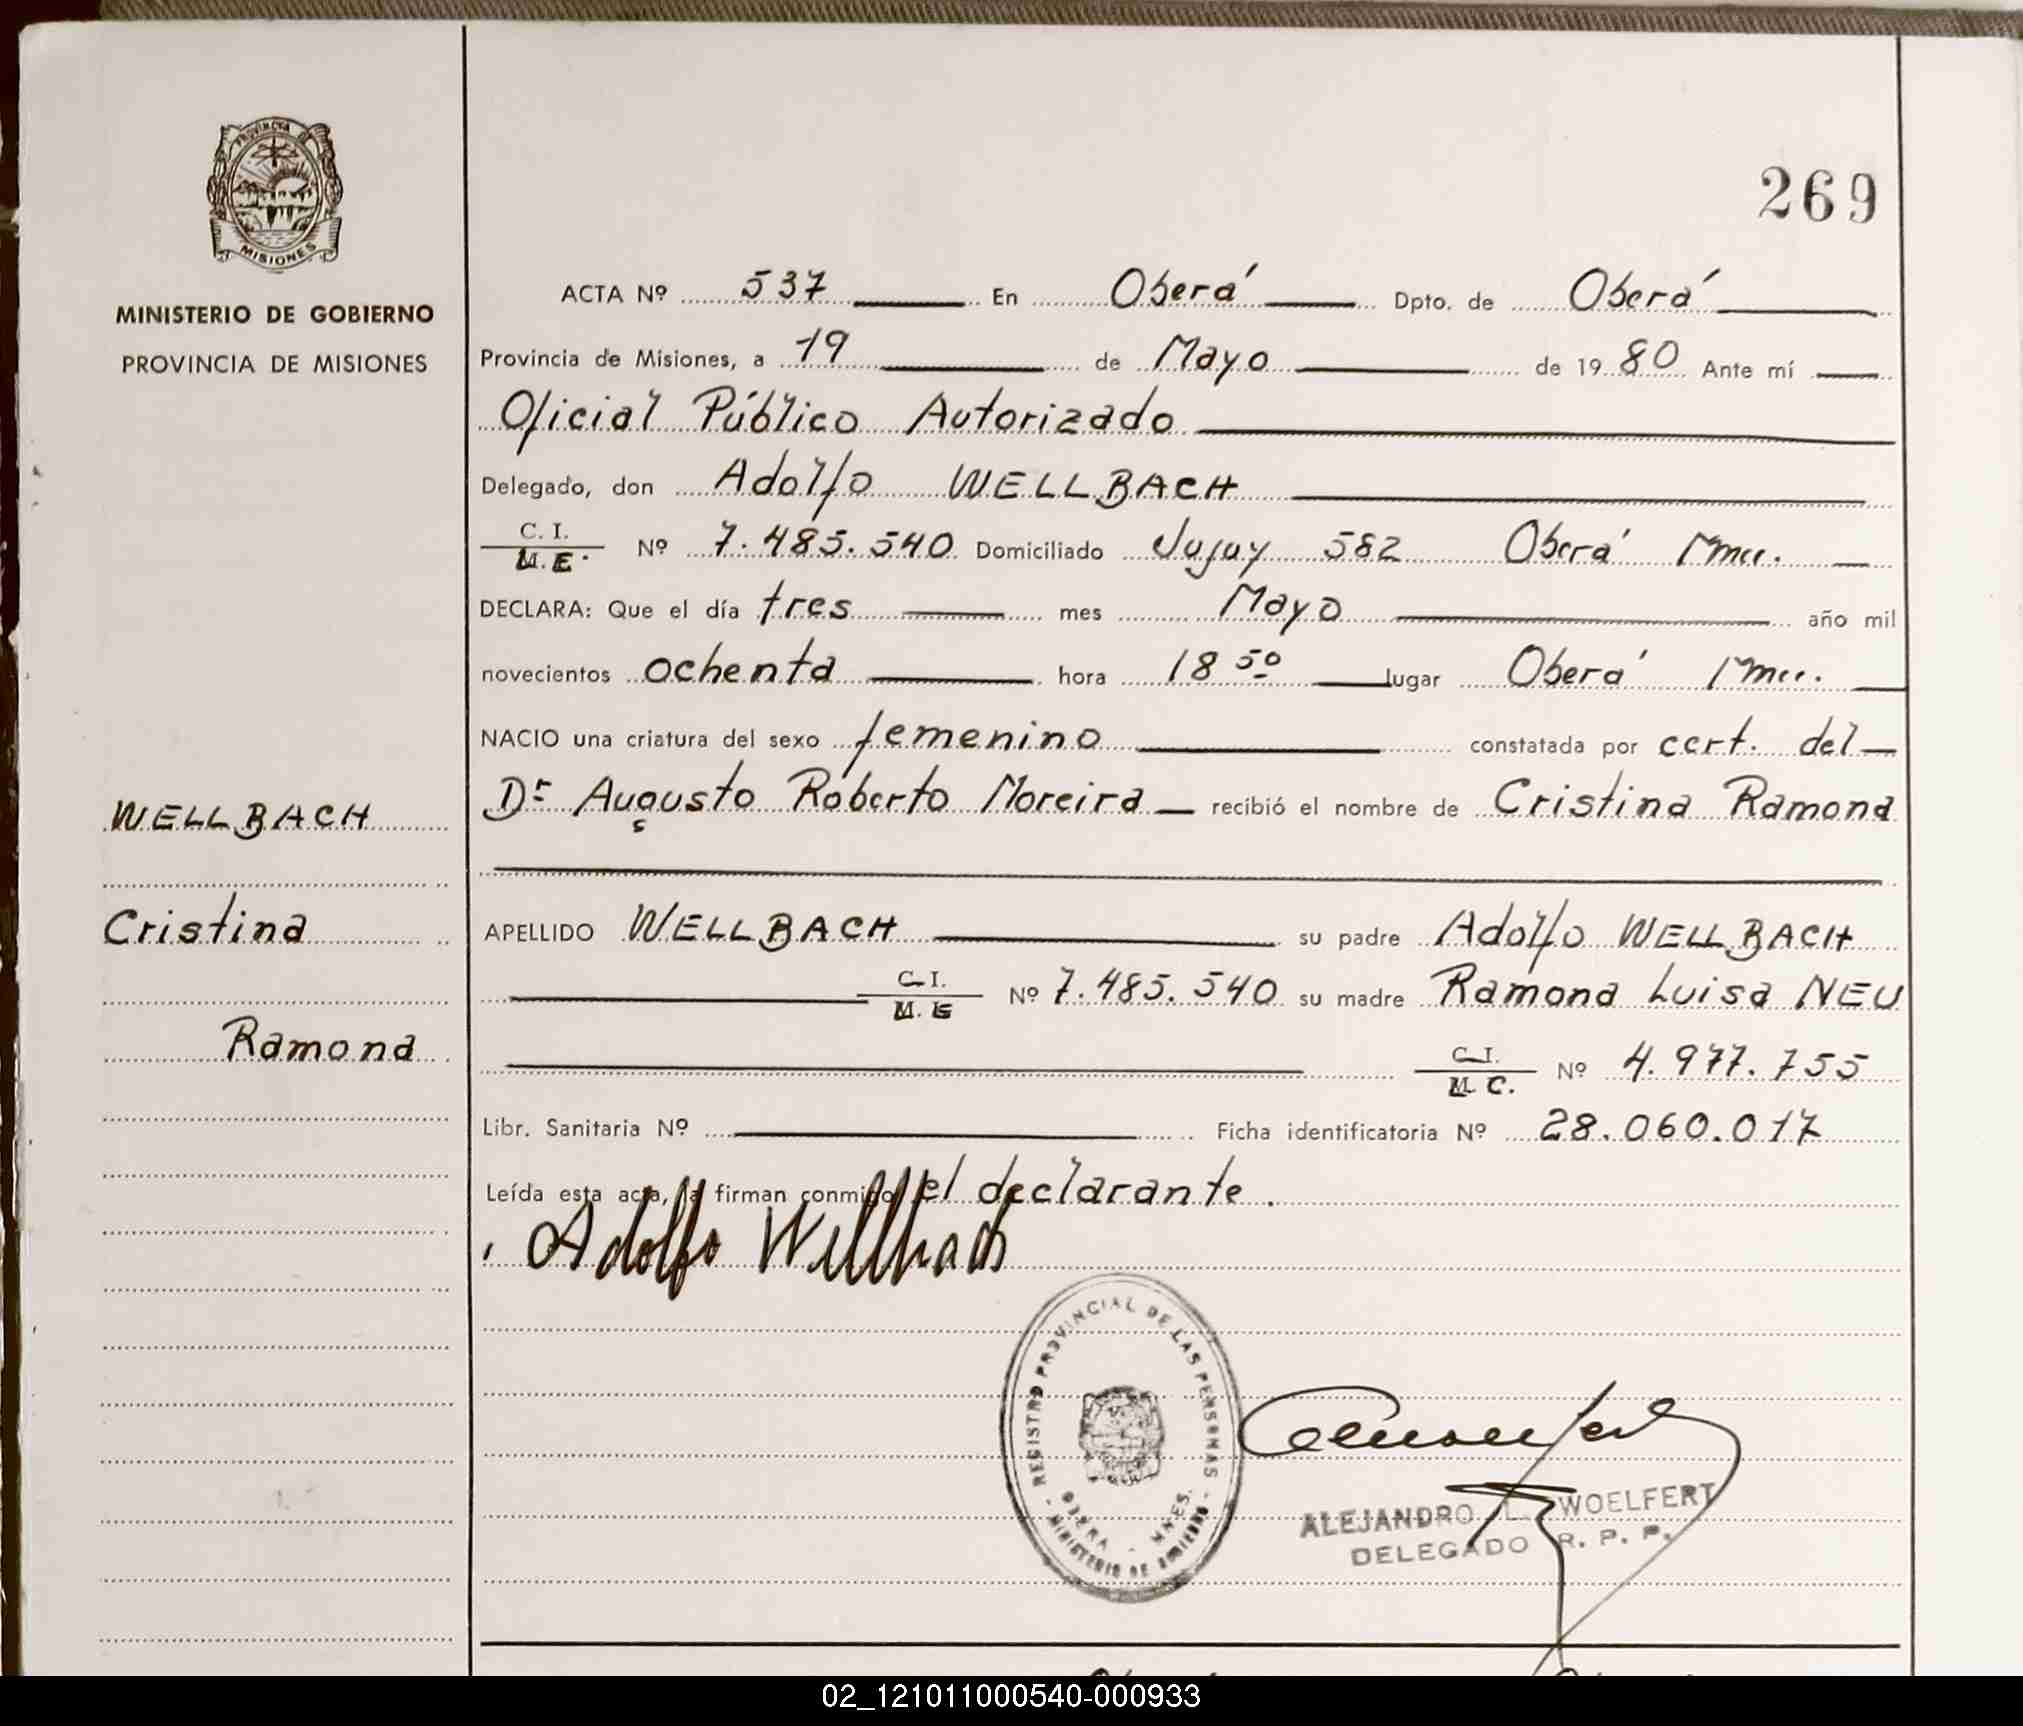 PROVINCIA DE
MISIONES
MINISTERIO DE GOBIERNO
PROVINCIA DE MISIONES
WELLBACH
Cristina
Ramona
269
ACTA Nº 537 En Oberá Dpto. de Oberá
Provincia de Misiones, a 19 de Mayo de 1980 Ante mí
Oficial Público Autorizado
Delegado, don Adolfo WELLBACH
C. I.
M.E. Nº 7.485.540 Domiciliado Jujuy 582 Oberá Mnes.
DECLARA: Que el día tres mes Mayo año mil
novecientos ochenta hora 18 50 lugar Oberá Mnes.
NACIO una criatura del sexo femenino constatada por cert. del
Dr Augusto Roberto Moreira recibió el nombre de Cristina Ramona
APELLIDO WELLBACH su padre Adolfo WELLBACH
C. I.
M. E Nº 7.485.540 su madre Ramona Luisa NEU
C. I.
M. C. Nº 4.977.755
Libr. Sanitaria Nº Ficha identificatoria Nº 28.060.017
Leída esta acta, la firman conmigo el declarante.
Adolfo Wellbach
REGISTRO PROVINCIAL DE LAS PERSONAS
OBERA - MNES.
- MINISTERIO DE GOBIERNO -
ALEJANDRO L. WOELFERT
DELEGADO R. P. P.
02_121011000540-000933